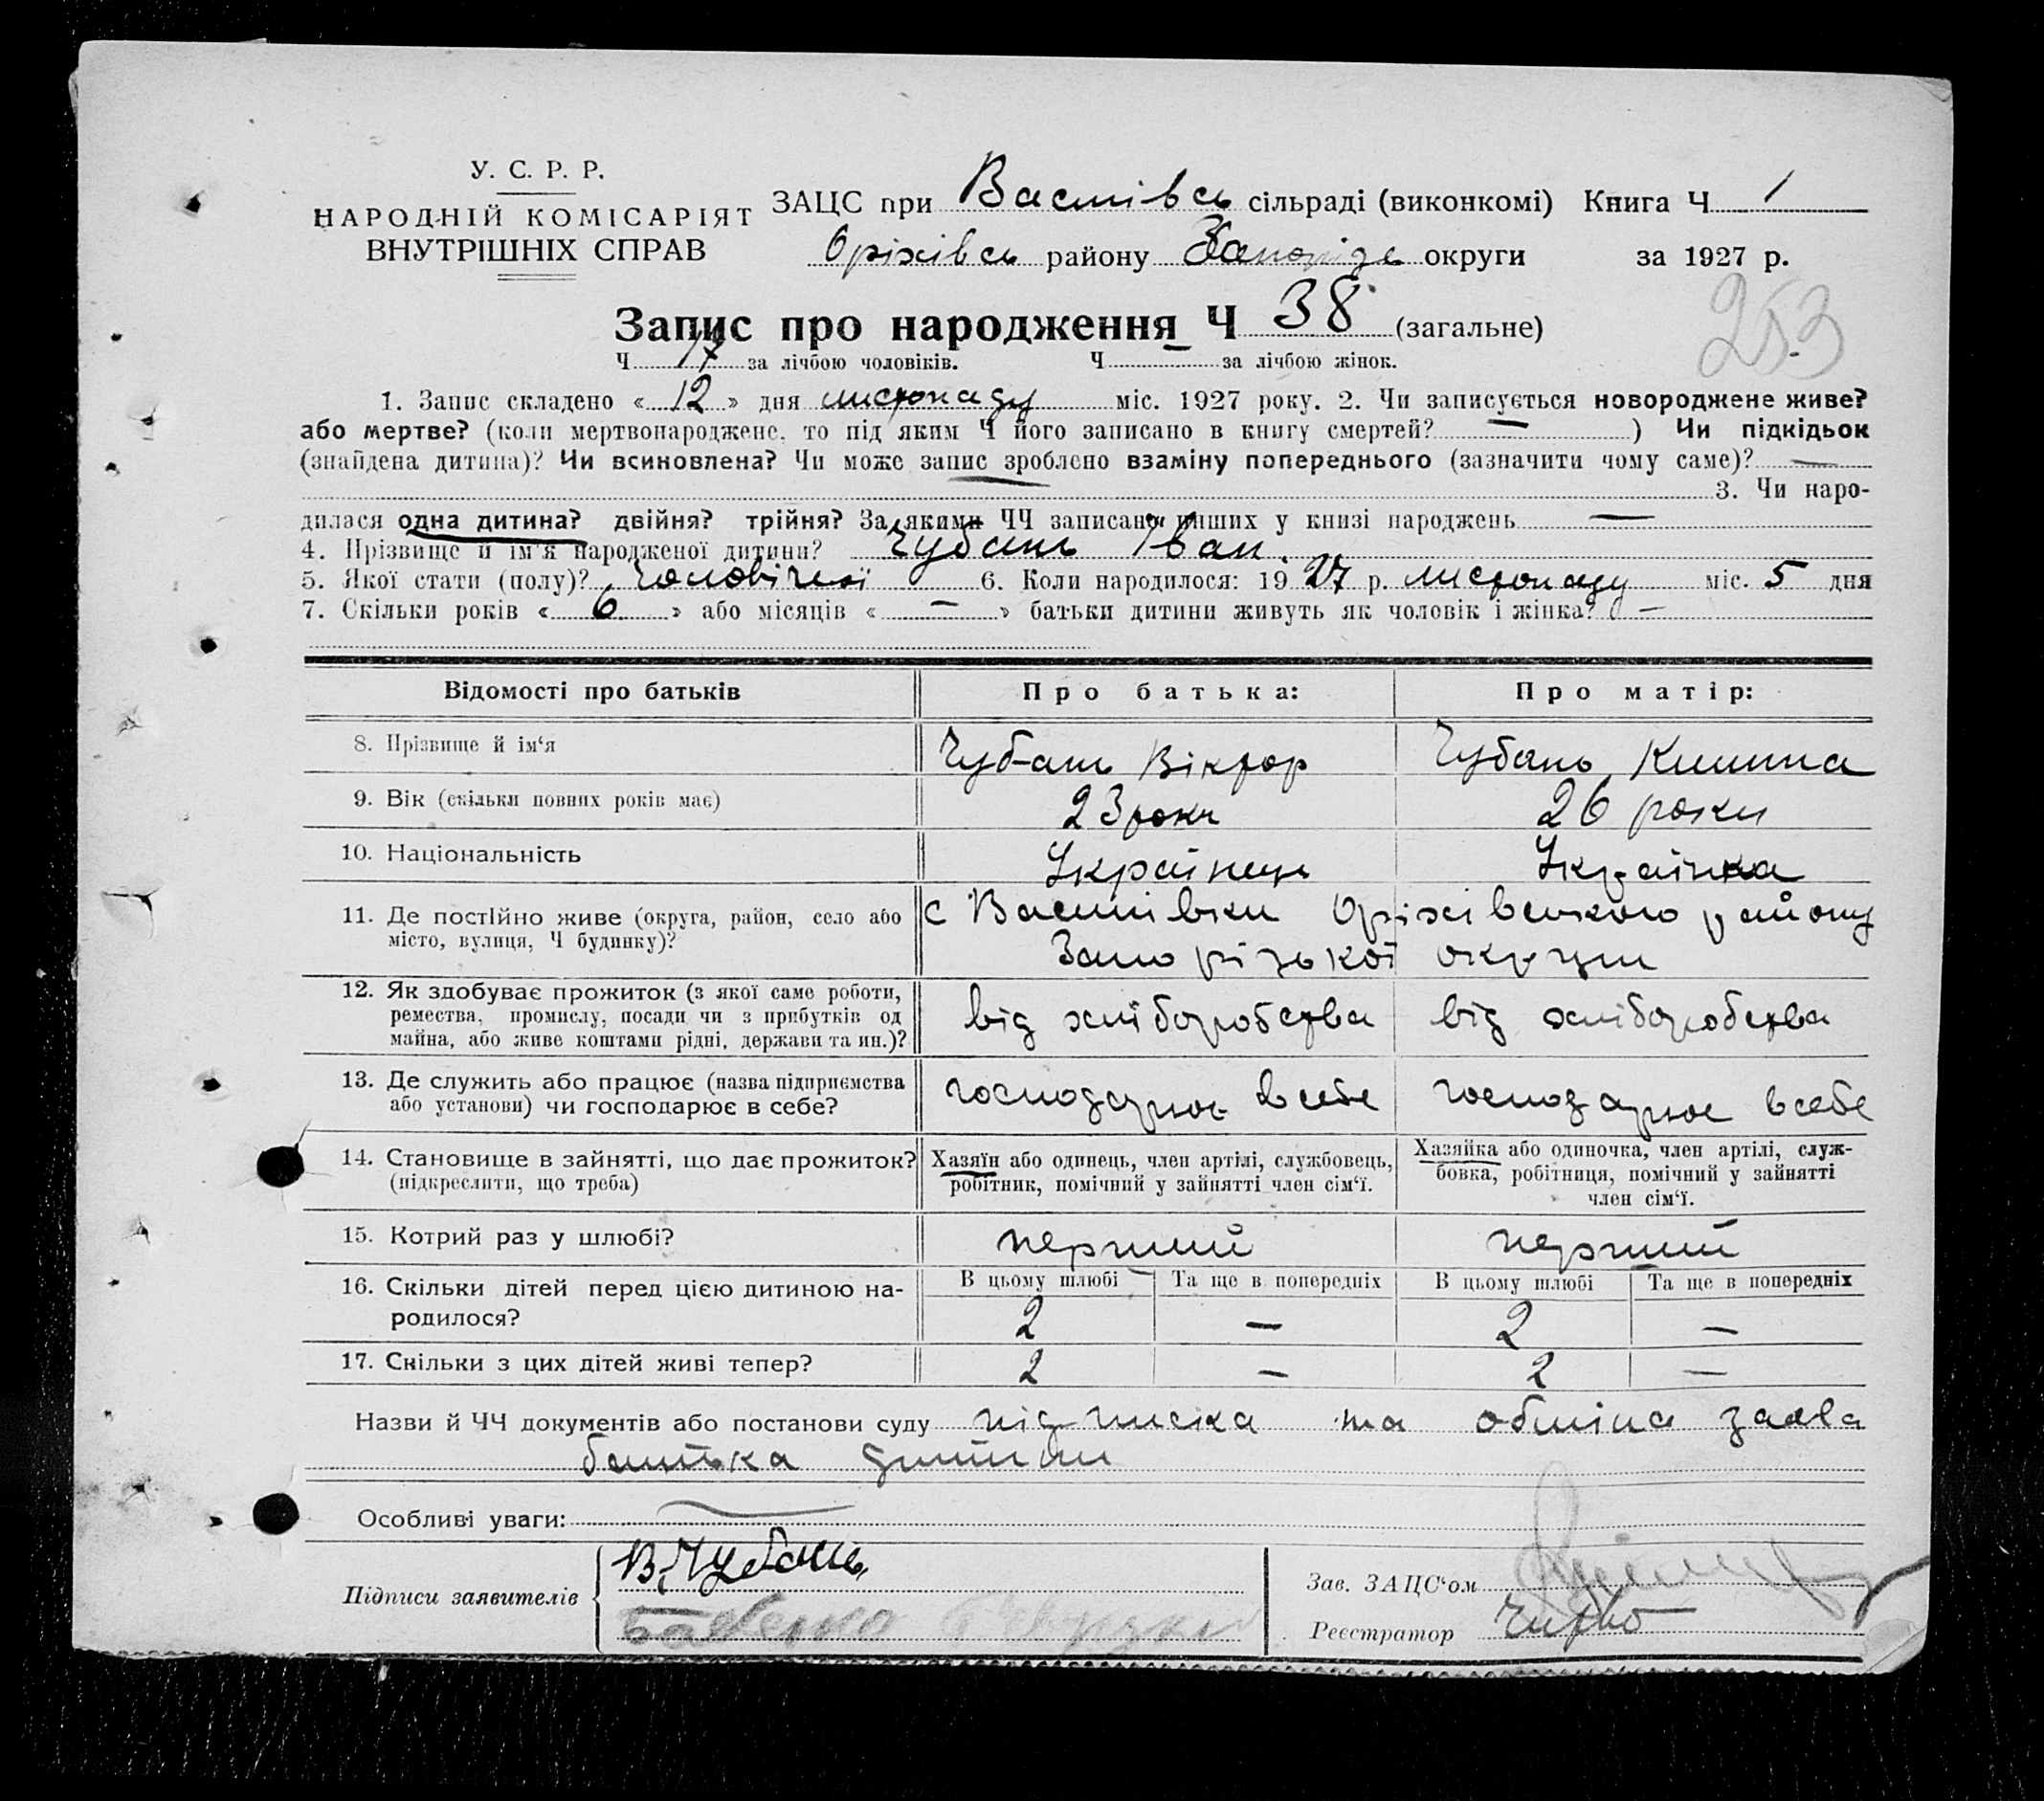 У. С. Р. Р.
НАРОДНІЙ КОМІСАРІЯТ
ВНУТРІШНІХ СПРАВ
ЗАЦС при Васинівсь сільраді (виконкомі) Книга Ч 1
Оріхівсь району Запорізь округи за 1927 р.
253
Запис про народження Ч 38 (загальне)
Ч 17 за лічбою чоловіків. Ч — за лічбою жінок.
1. Запис складено « 12 » дня листопаду міс. 1927 року. 2. Чи записується новороджене живе?
або мертве? (коли мертвонароджене, то під яким Ч його записано в книгу смертей? — ) Чи підкідьок
(знайдена дитина)? Чи всиновлена? Чи може запис зроблено взаміну попереднього (зазначити чому саме)? —
3. Чи наро-
дилася одна дитина? двійня? трійня? За якими ЧЧ записани инших у книзі народжень —
4. Прізвище й ім'я народженої дитини? Чубань Іван.
5. Якої стати (полу)? чоловічої 6. Коли народилося: 1927 р. листопаду міс. 5 дня
7. Скільки років « 6 » або місяців « — » батьки дитини живуть як чоловік і жінка? —
Відомості про батьків Про батька: Про матір:
8. Прізвище й ім‘я Чубань Віктор Чубань
9. Вік (скільки повних років має) 23 роки 26 роки
10. Національність Українець Українка
11. Де постійно живе (округа, район, село або місто, вулиця, Ч будинку)? с Васинівки Оріхівського району
Запорізької округи
12. Як здобуває прожиток (з якої саме роботи,
ремества, промислу, посади чи з прибутків од
майна, або живе коштами рідні, держави та ин.)? від хліборобства від хліборобства
13. Де служить або працює (назва підприємства
або установи) чи господарює в себе? господарює в себе господарює в себе
14. Становище в зайнятті, що дає прожиток?
(підкреслити, що треба)
Хазяїн або одинець, член артілі, службовець,
робітник, помічний у зайнятті член сім‘ї.
Хазяйка або одиночка, член артілі, служ-
бовка, робітниця, помічний у зайнятті
член сім‘ї.
15. Котрий раз у шлюбі? перший перший
16. Скільки дітей перед цією дитиною на-
родилося?
В цьому шлюбі Та ще в попередніх В цьому шлюбі Та ще в попередніх
2 — 2 —
17. Скільки з цих дітей живі тепер? 2 — 2 —
Назви й ЧЧ документів або постанови суду підписка та заява
батька дитини
Особливі уваги: —
Підписи заявителів В. Чубань
Зав. ЗАЦС‘ом
Реєстратор